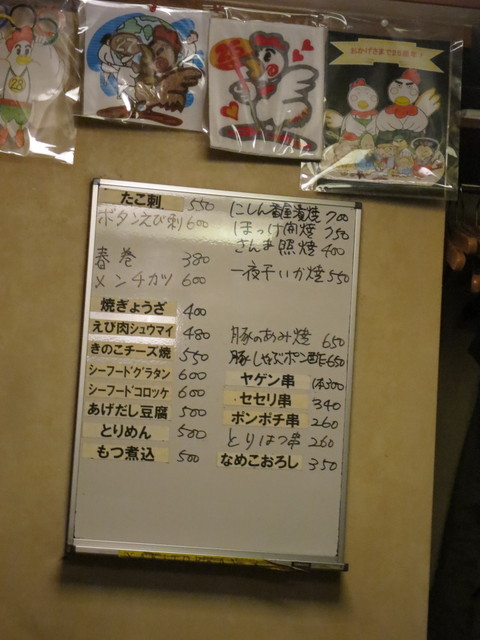 たこ刺 550
ボタンえび刺 600
春巻 380
メンチカツ 600
焼ぎょうざ 400
えび肉シュウマイ 480
きのこチーズ焼 550
シーフードグラタン 600
シーフードコロッケ 600
あげだし豆腐 500
とりめん 500
もつ煮込 500
ほっけ開焼 750
さんま照焼 400
一夜干いか焼 550
豚のあみ焼 650
豚しゃぶポン酢 650
ヤゲン串
セセリ串 340
ボンボチ串 260
とりはつ串 260
なめこおろし 350